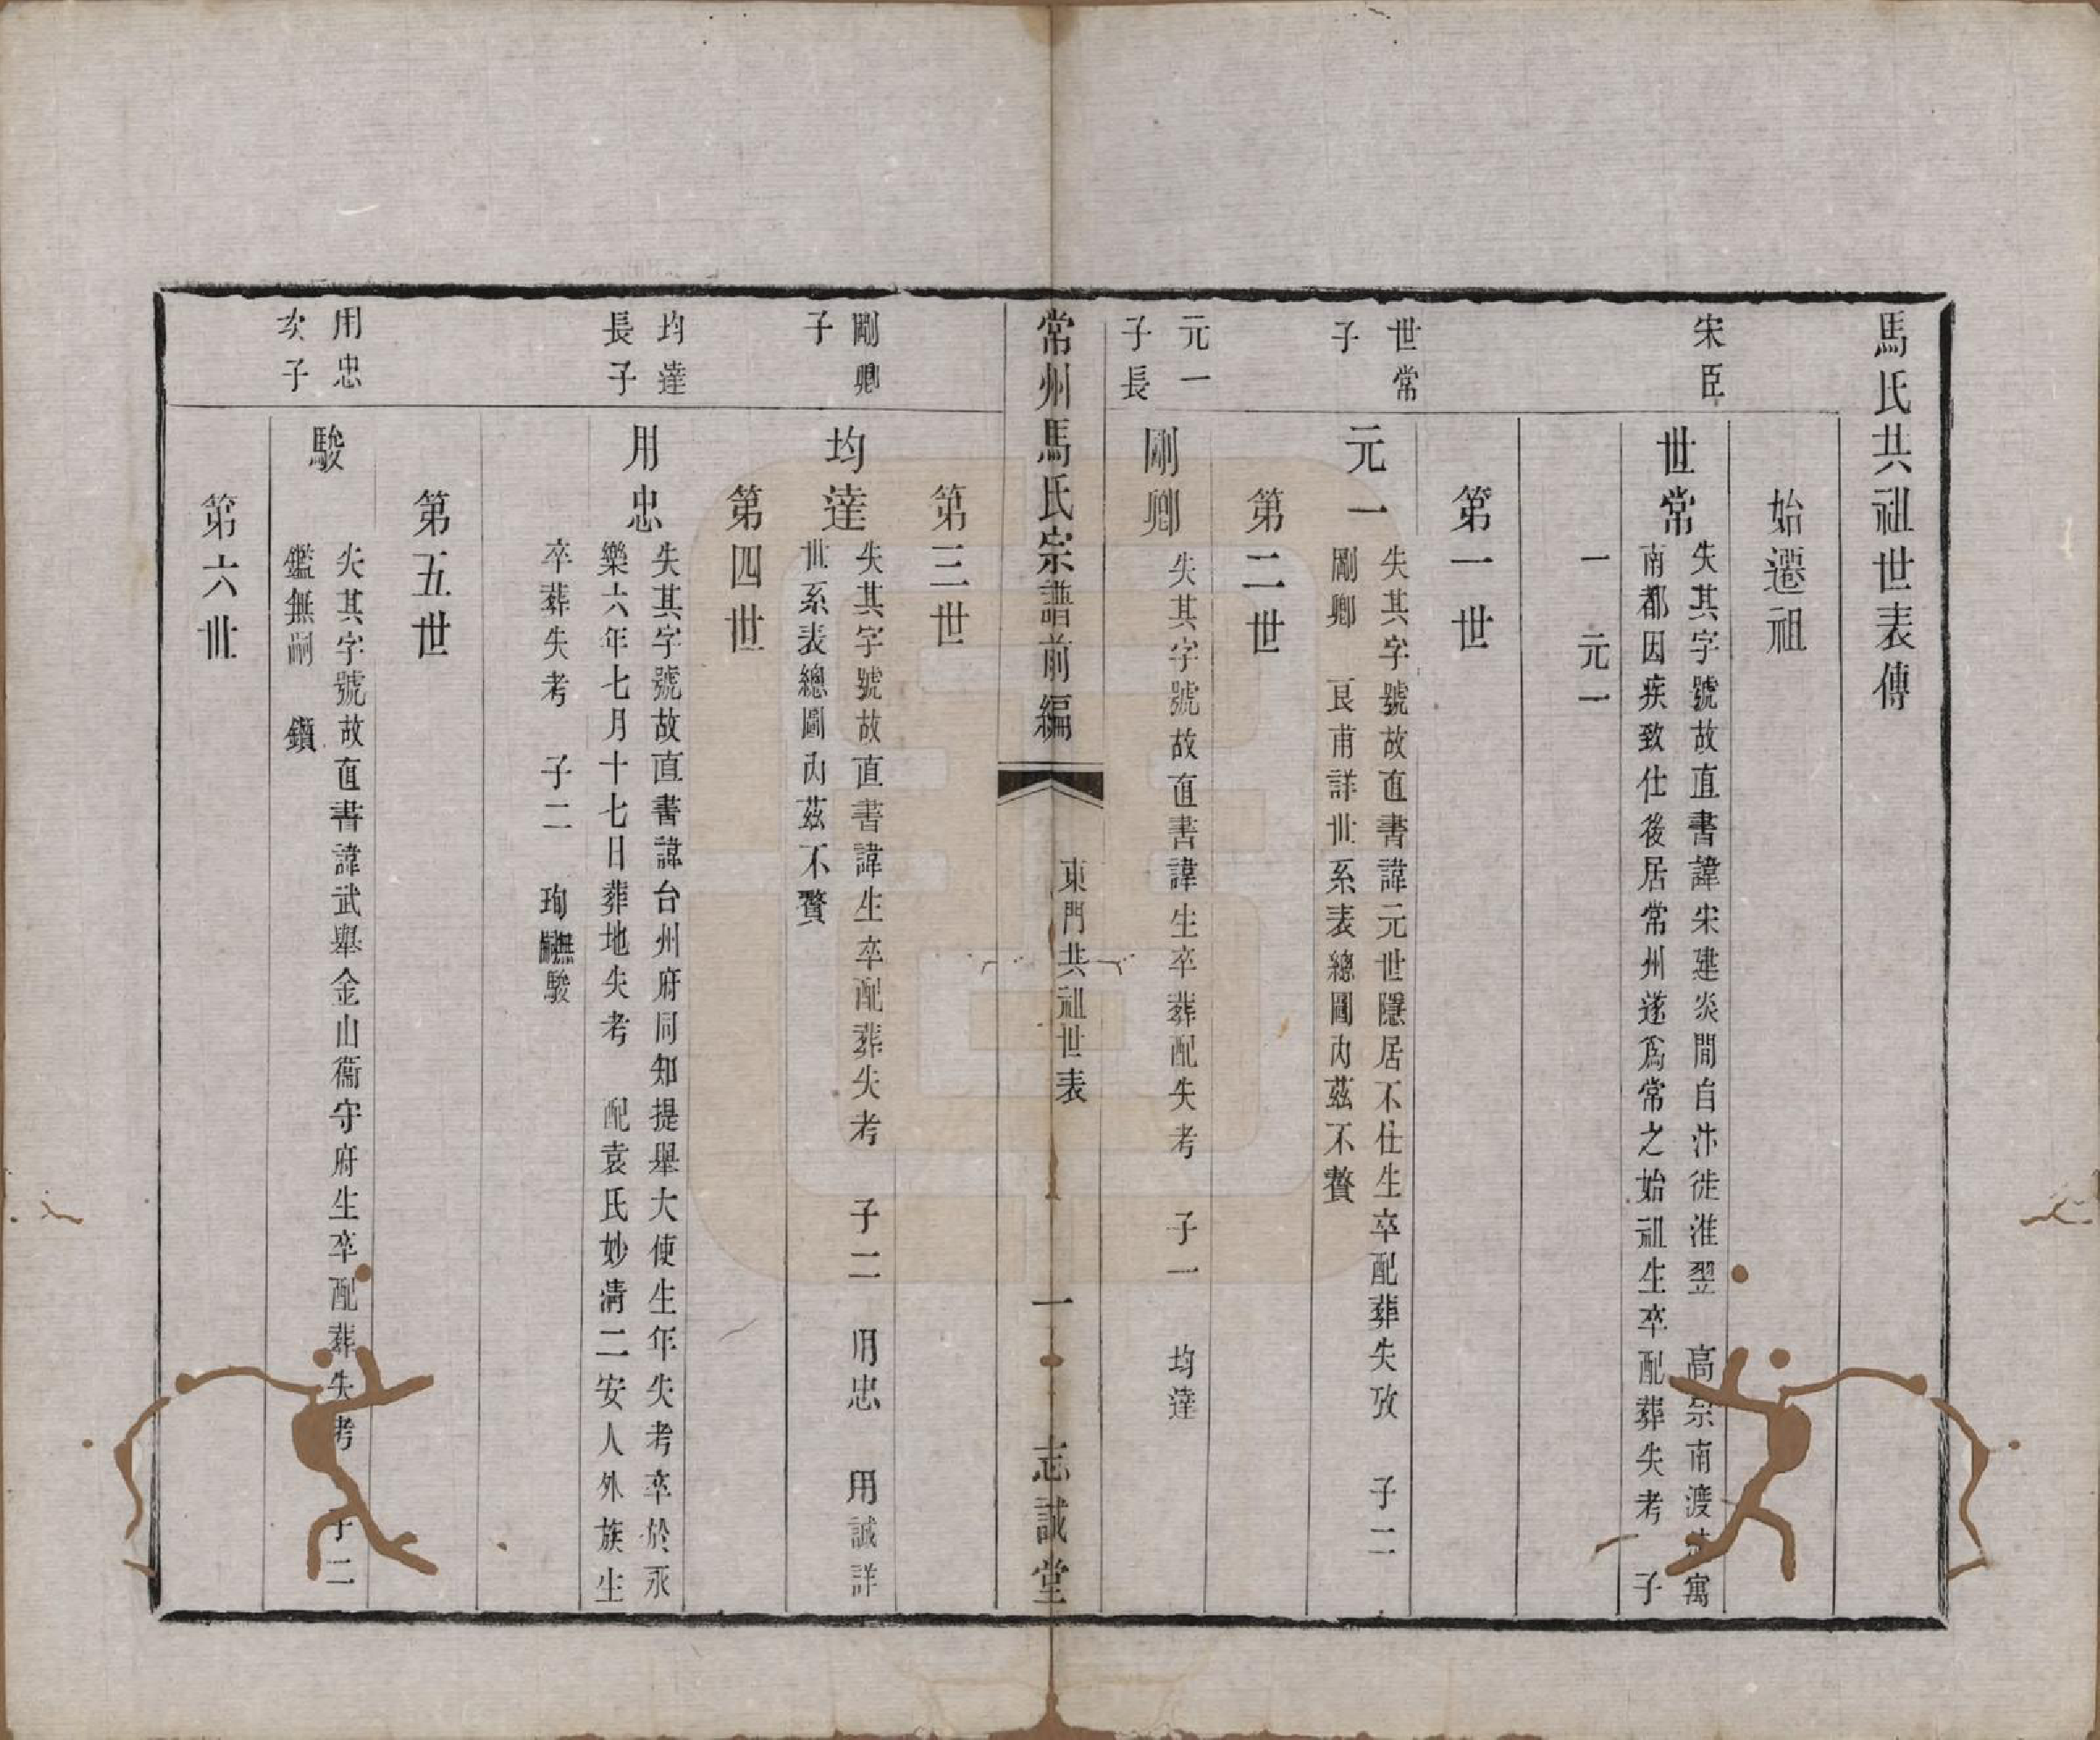 馬氏共祖世表傳
始遷祖
宋臣
世常
失其字號故直書諱宋建炎間自汴徙淮翌 高宗南渡 寓
南都因疾致仕後居常州遂爲常之始祖生卒配葬失考 子
一 元一
第一世
世常
子
元一
失其字號故直書諱元世隱居不仕生卒配葬失攷 子二
剛卿 艮甫詳世系表總圖內茲不贅
第二世
元一
子長
剛卿
失其字號故直書諱生卒葬配失考 子一 均達
常州馬氏宗譜前編
東門共祖世表
一
志誠堂
第三世
剛卿
子
均達
失其字號故直書諱生卒配葬失考 子二 用忠 用誠詳
世系表總圖內茲不贅
第四世
均達
長子
用忠
失其字號故直書諱台州府同知提舉大使生年失考卒於永
樂六年七月十七日葬地失考 配袁氏妙清二安人外族生
卒葬失考 子二 珣無嗣駿
第五世
用忠
次子
駿
失其字號故直書諱武舉金山衞守府生卒配葬失考 子二
鑑無嗣 鑽
第六世